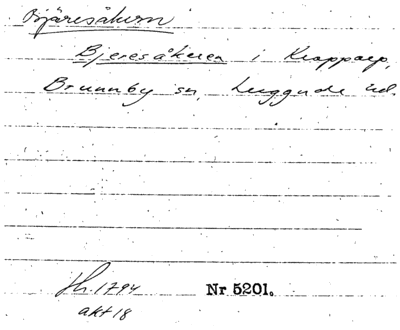 Bjäresåkern
Bjeresåkeren i Krapparp,
Brunnby sn, Luggude hd.
Sth. 1794 Nr 5201.
akt 18